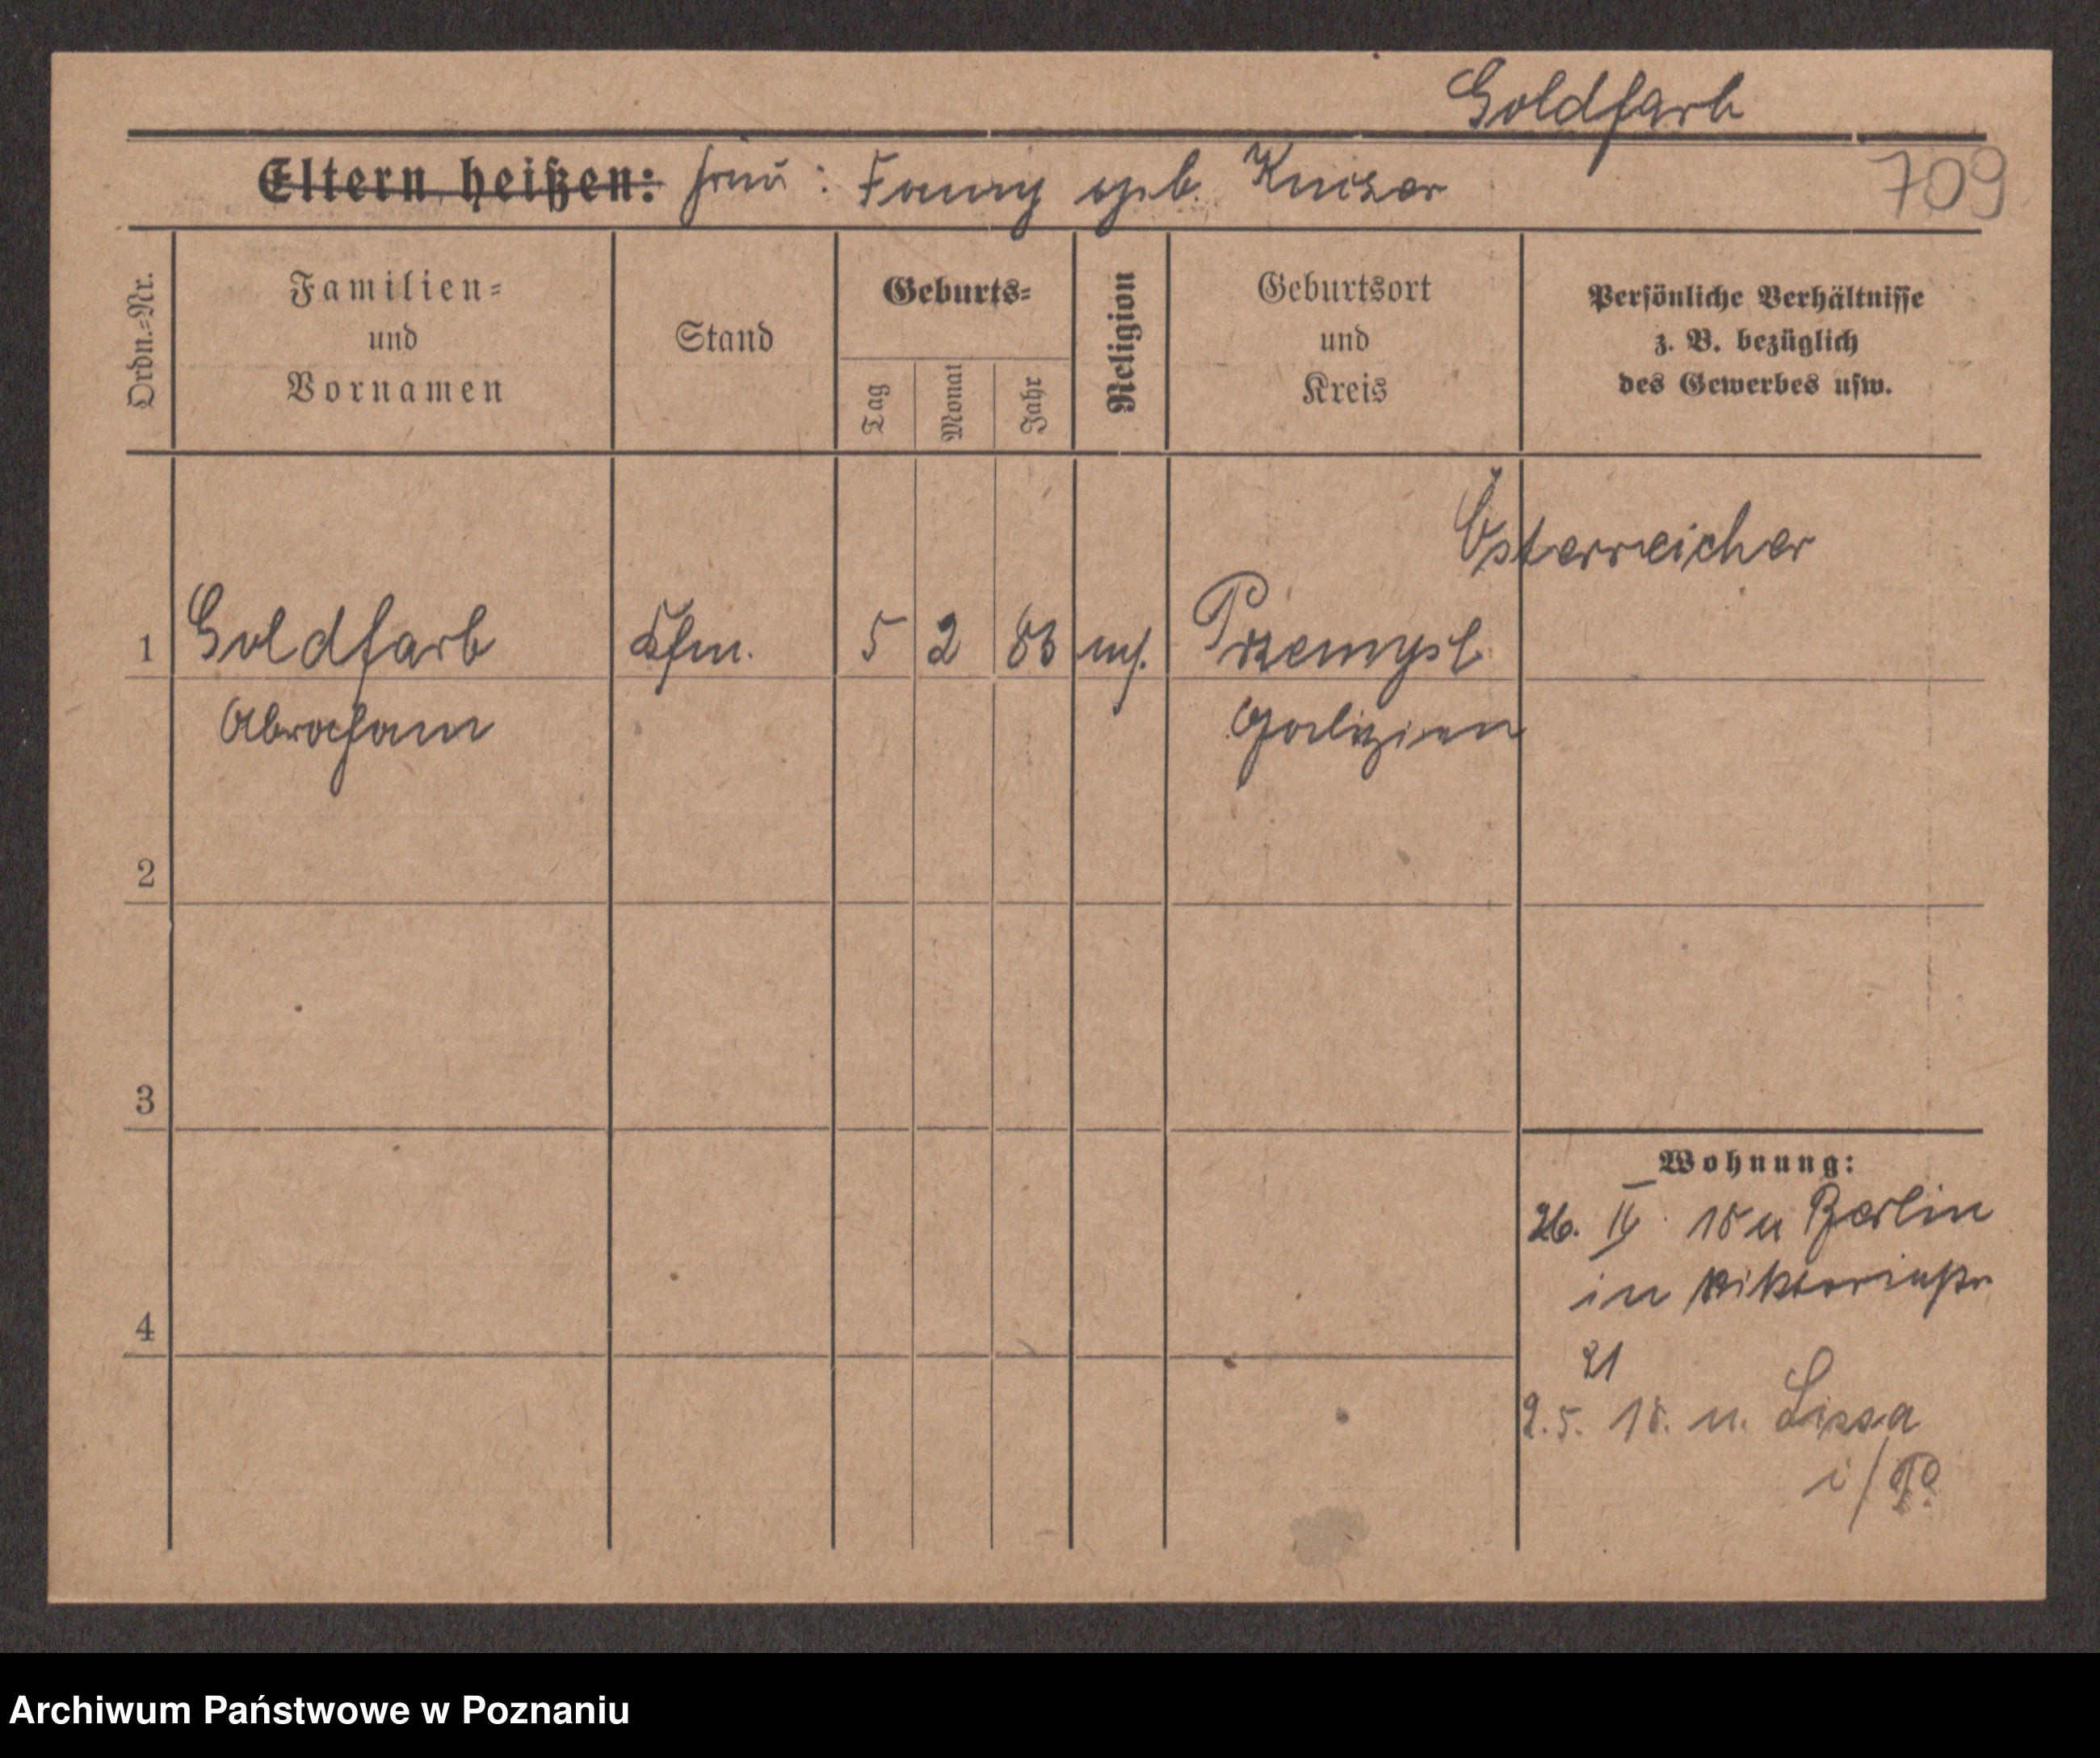 Goldfarb
Eltern heißen: Frau: Fanny geb.
709
Ordn.=Nr.
Familien=
und
Vornamen
Stand
Geburts=
Tag
Monat
Jahr
Religion
Geburtsort
und
Kreis
Persönliche Verhältnisse
z. B. bezüglich
des Gewerbes usw.
Österreicher
1 Goldfarb Kfm. 5 2 83 mos. Przemysl
Abraham Galizien
2
3
4
Wohnung:
26. IV. 18 n Berlin
in Viktoriastr
21
2.5. 18. n. Lissa
i/P.
Archiwum Państwowe w Poznaniu